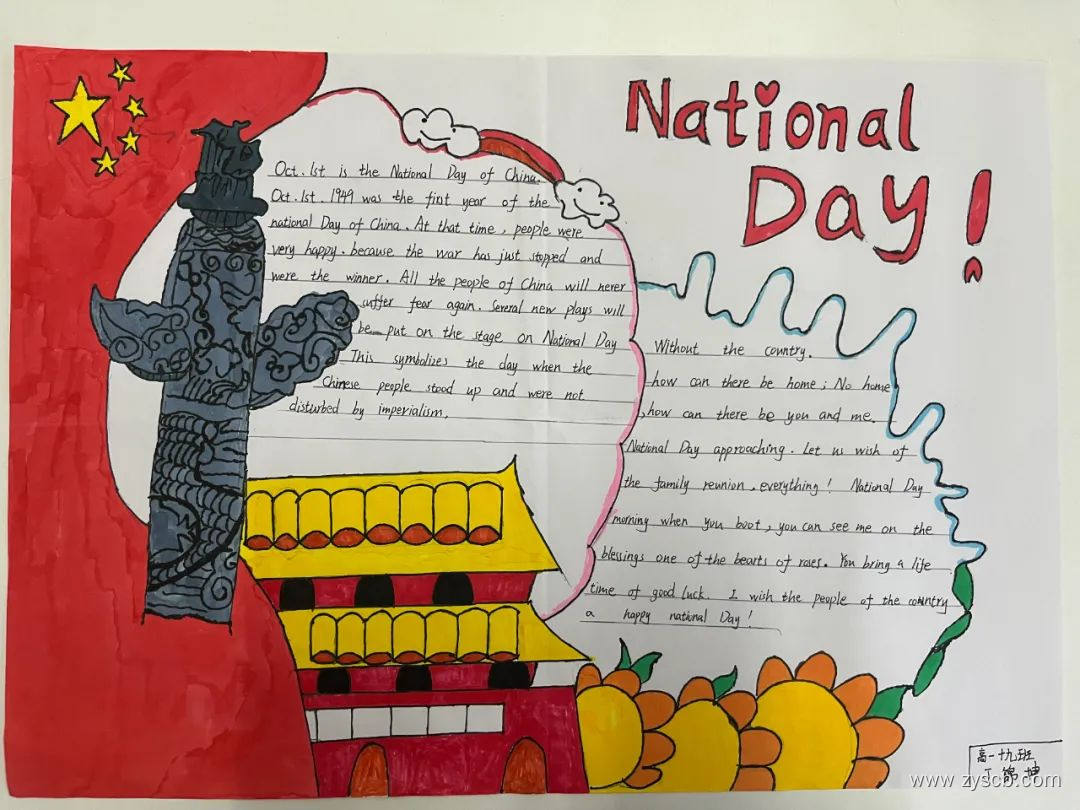 National
Day!
Oct. 1st is the National Day of China.
Oct. 1st. 1949 was the first year of the
national Day of China. At that time, people were
very happy. because the war has just stopped and
were the winner. All the people of China will never
suffer fear again. Several new plays will
be put on the stage on National Day
This symbolizes the day when the
Chinese people stood up and were not
disturbed by imperialism.
Without the country.
how can there be home; No home
,how can there be you and me.
National Day approaching. Let us wish of
the family reunion, everything! National Day
morning when you boot, you can see me on the
blessings one of the bearts of roses. You bring a life
time of good luck. I wish the people of the country
a happy national Day!
高一十九班
丁锦坤
www.zyscb.com